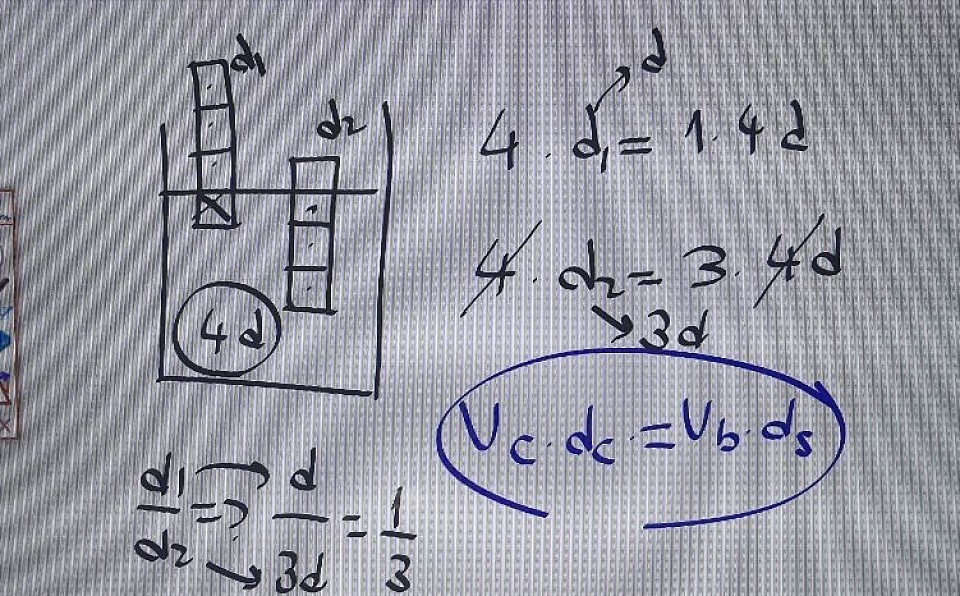 d1
d2
4d
4 . d1 = 1 . 4d
d
4 . d2 = 3 . 4d
3d
Vc . dc = Vb . ds
d1/d2 = ? d/3d = 1/3